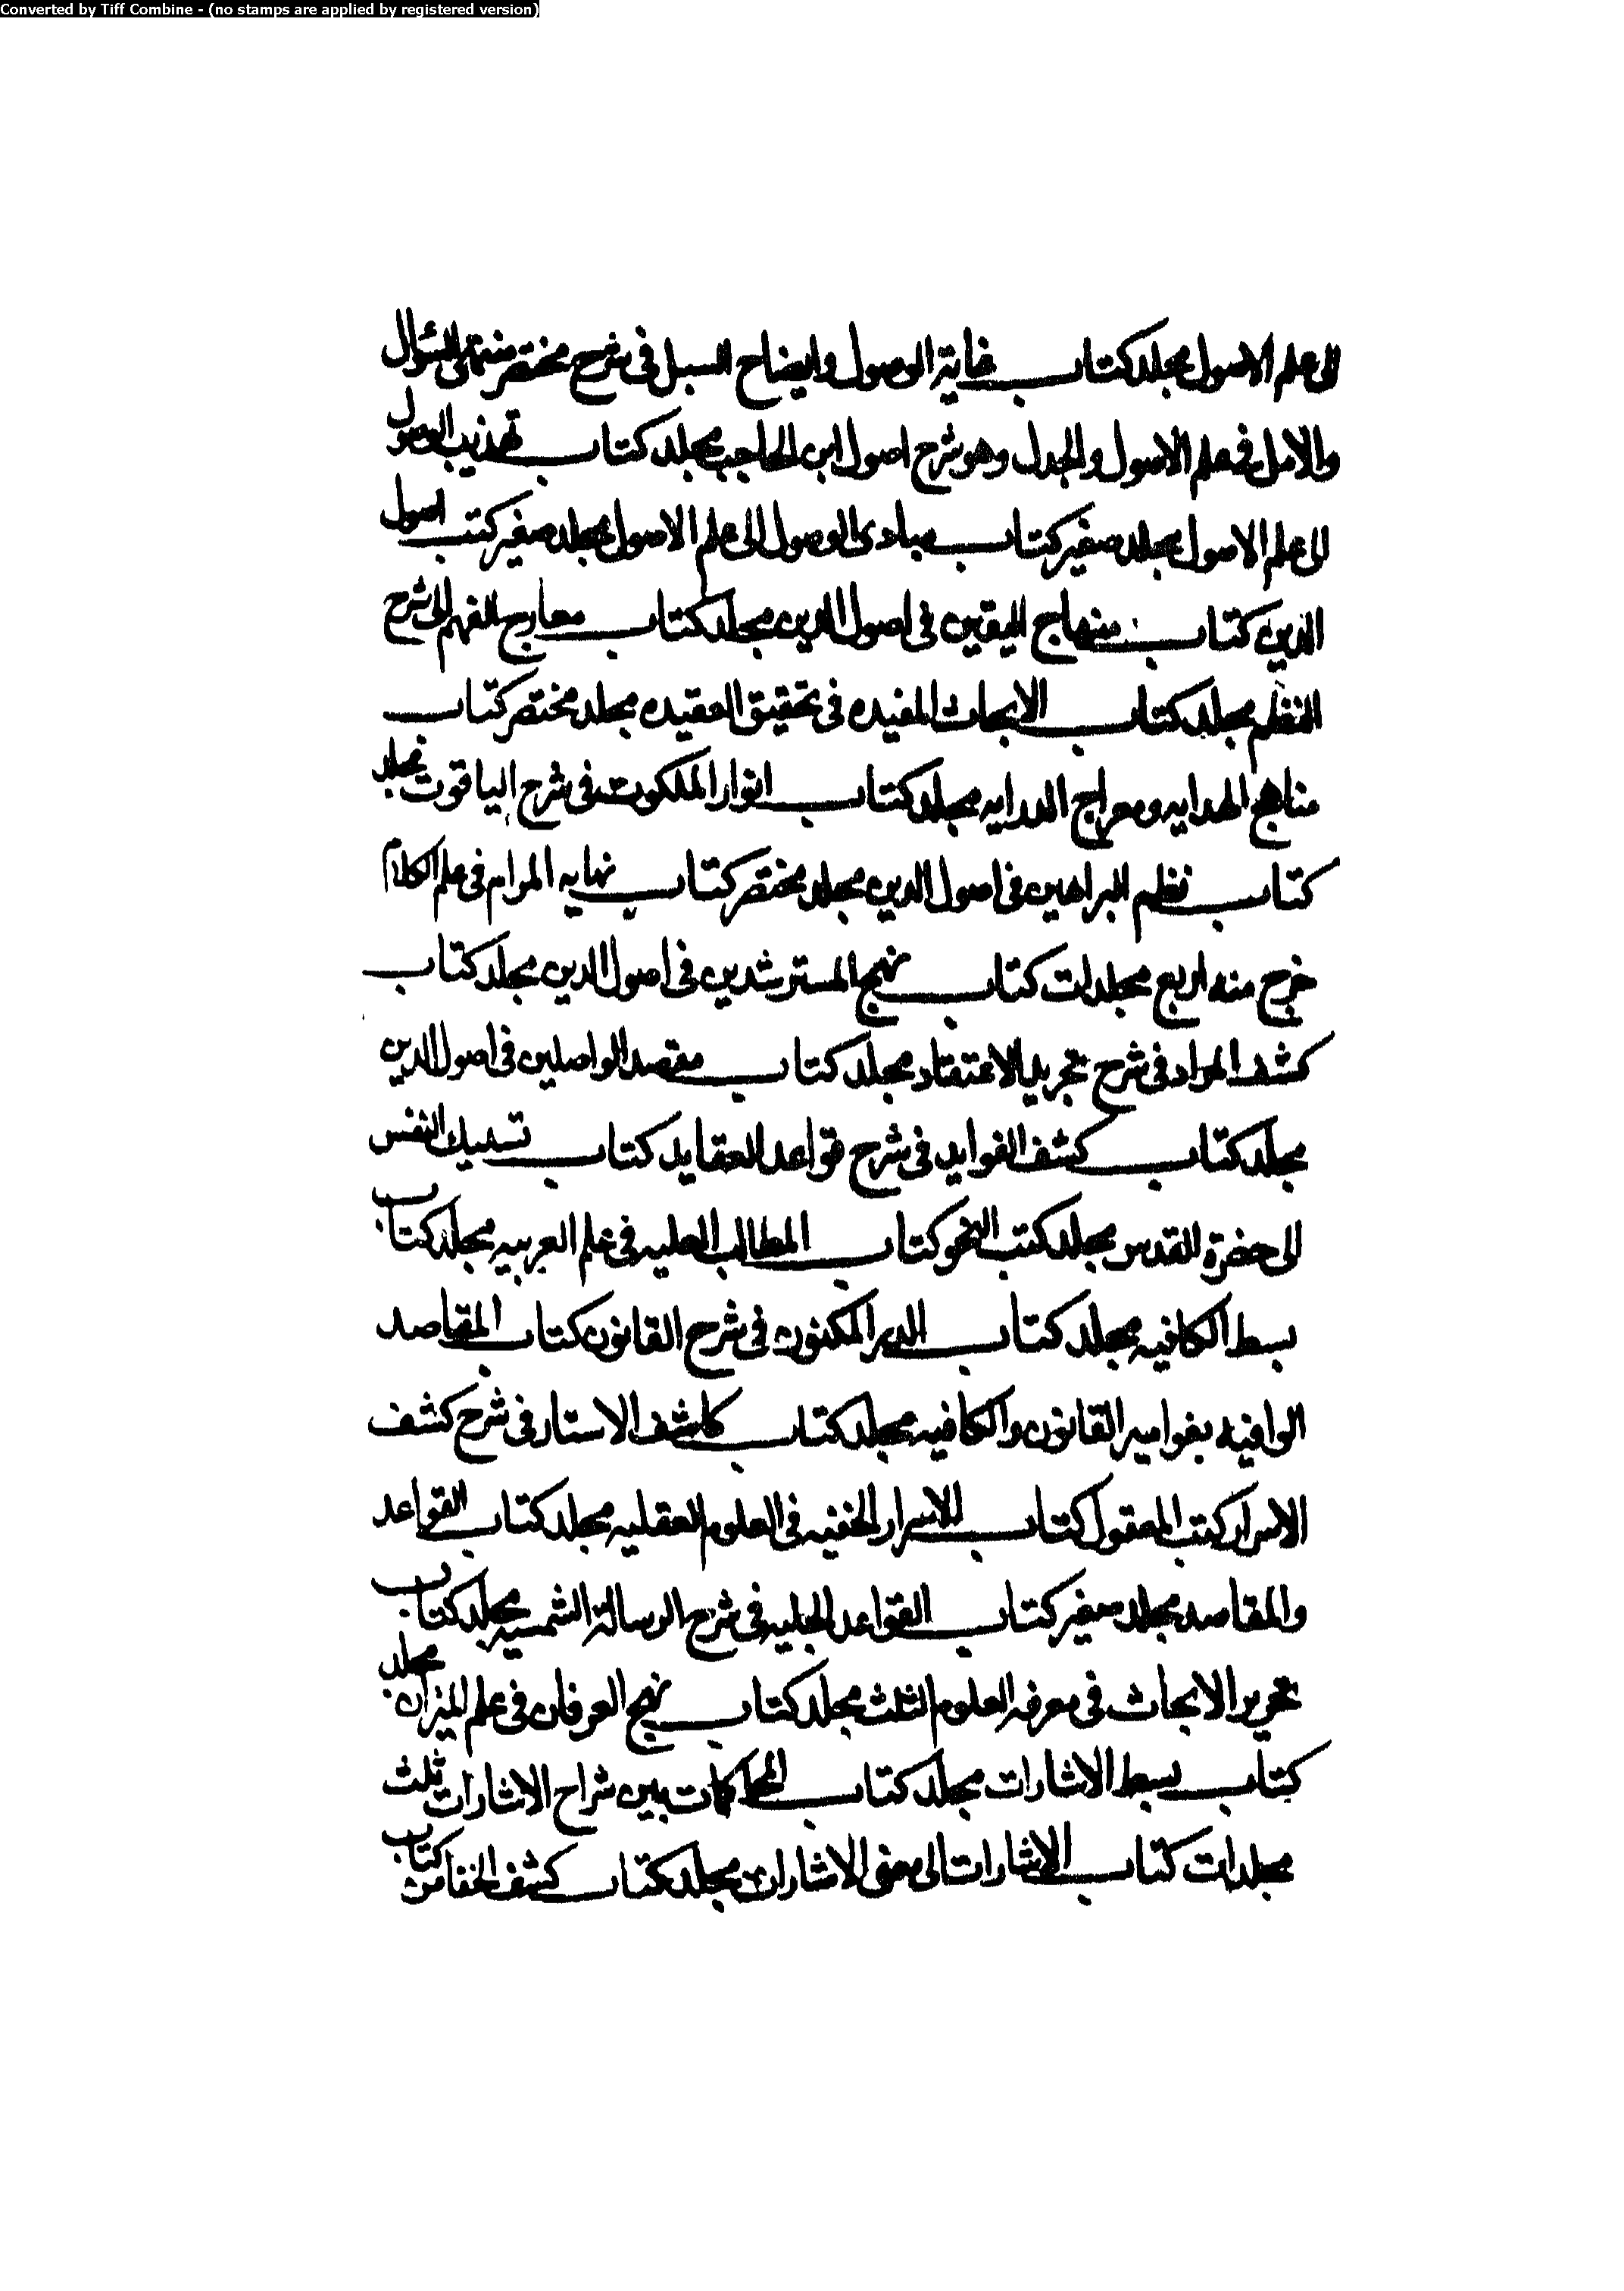 Converted by Tiff Combine - (no stamps are applied by registered version)
الى علم الاصول مجلد كتاب غاية الوصول وايضاح السبل فى شرح مختصر منتهى السؤال
والامل فى علم الاصول والجدل وهو شرح اصول ابن الحاجب مجلد كتاب تهذيب الوصول
الى علم الاصول مجلد صغير كتاب مبادى الوصول الى علم الاصول مجلد صغير كتب اصول
الدين كتاب منهاج اليقين فى اصول الدين مجلد كتاب معارج الفهم الى شرح
النظم مجلد كتاب الابحاث المفيده فى تحقيق العقيده مجلد مختصر كتاب
مناهج الهدايه ومعراج الدرايه مجلد كتاب انوار الملكوت فى شرح الياقوت مجلد
كتاب نظم البراهين فى اصول الدين مجلد مختصر كتاب نهايه المرام فى علم الكلام
خرج منه اربع مجلدات كتاب نهج المسترشدين فى اصول الدين مجلد كتاب
كشف المراد فى شرح تجريد الاعتقاد مجلد كتاب مقصد الواصلين فى اصول الدين
مجلد كتاب كشف الفوايد فى شرح قواعد العقايد كتاب تسليك النفس
الى حضرة القدس مجلد كتب النحو كتاب المطالب العليه فى علم العربيه مجلد كتاب
بسط الكافيه مجلد كتاب الدر المكنون فى شرح القانون كتاب المقاصد
الوافيه بفوايد القانون والكافيه مجلد كتاب كاشف الاستار فى شرح كشف
الاسرار كتب المعقول كتاب الاسرار الخفيه فى العلوم العقليه مجلد كتاب القواعد
والمقاصد مجلد صغير كتاب القواعد الجليه فى شرح الرسالة الشمسيه مجلد كتاب
تحرير الابحاث فى معرفه العلوم الثلث مجلد كتاب نهج العرفان فى علم الميزان مجلد
كتاب بسط الاشارات مجلد كتاب المحاكمات بين شراح الاشارات ثلث
مجلدات كتاب الاشارات الى معنى الاشارات مجلد كتاب كشف الخفا من كتاب